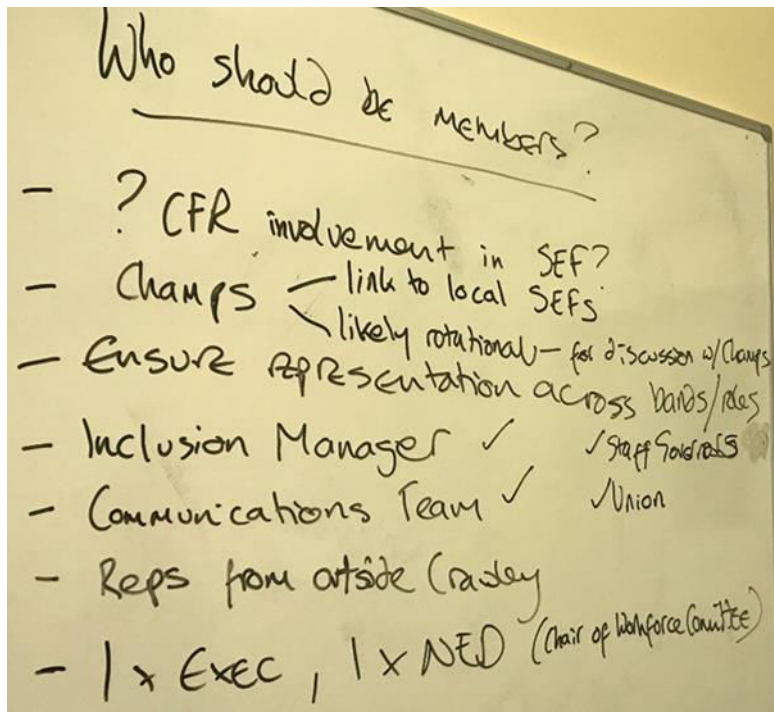 Who should be members?
- ? CFR involvement in SEF?
- Champs - link to local SEFs
\ likely rotational - for discussion w/ Champs
- Ensure representation across bands/roles
- Inclusion Manager ✓ ✓ Staff Governors
- Communications Team ✓ ✓ Union
- Reps from outside Crawley
- 1 x Exec, 1 x NED (Chair of Workforce Committee)